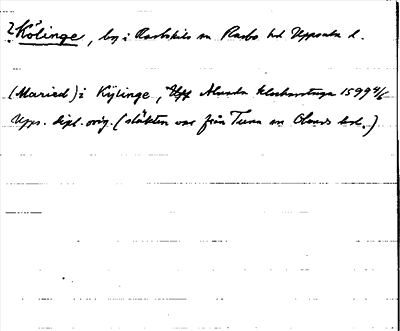 ? Kölinge, by i Rasbokils sn Rasbo hd Uppsala l.
(Maried) i Kÿlinge, Upp Alunda klockarstuga 1599 4/6
Upps. dipl. orig. (släkten var från Tuna sn Olands hd.)